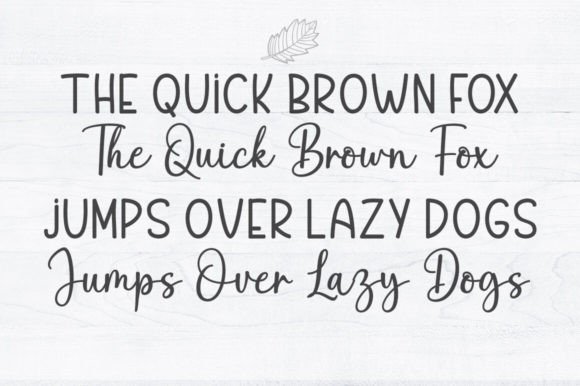 THE QUiCK BROWN FOX
The Quick Brown Fox
jUMPS OVER LAZY DOGS
Jumps Over Lazy Dogs